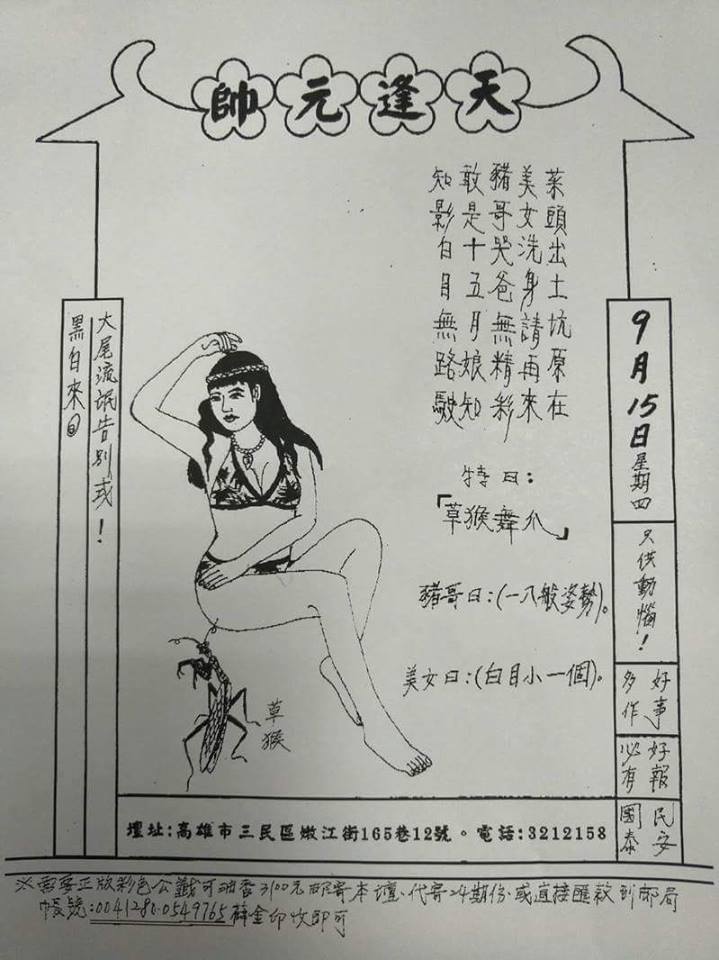 天逢元帥
菜頭出土坑原在
美女洗身請再來
豬哥哭爸無精彩
敢是十五月娘知
知影白目無路駛
特曰:
「草猴舞爪」
豬哥曰:(一八般姿勢)。
美女曰:(白目小一個)。
9月15日星期四
只供動惱!
好事
多作
好報
必有
民安
國泰
大尾流氓告別式!
黑白來
草猴
壇址:高雄市三民區嫩江街165巷12號。電話:3212158
※需要正版彩色公籤可油香3100元郵寄本壇、代寄24期份、或直接匯款到郵局
帳號:0041280.0549765薛金印收即可